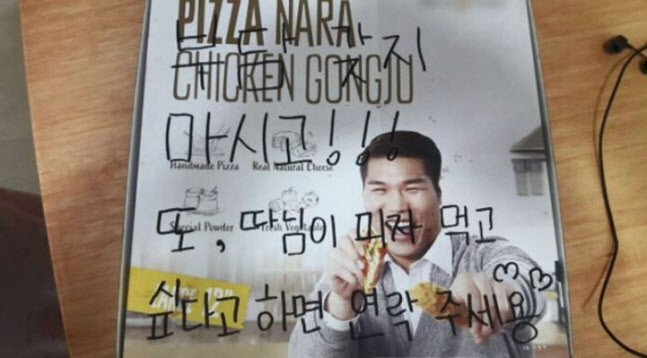 PIZZA NARA
부담 갖지
CHICKEN GONGJU
마시고!!!
Handmade Pizza
Real Natural Cheese
Special Powder
Fresh Vegetable
또, 딸님이 피자 먹고
싶다고 하면 연락 주세용
SINCE